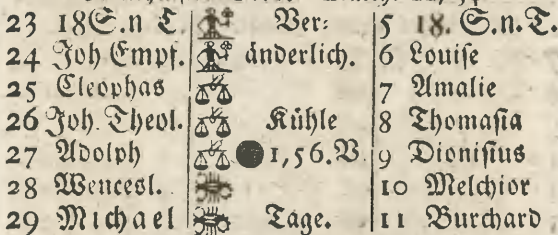 23 18 S.n T. Ver⸗ 5 18. S.n.T.
24 Joh Empf. änderlich. 6 Louiſe
25 Cleophas 7 Amalie
26 Joh. Theol. Kühle 8 Thomaſia
27 Adolph ●1,56.V. 9 Dioniſius
28 Wencesl. 10 Melchior
29 Michael Tage. 11 Burchard